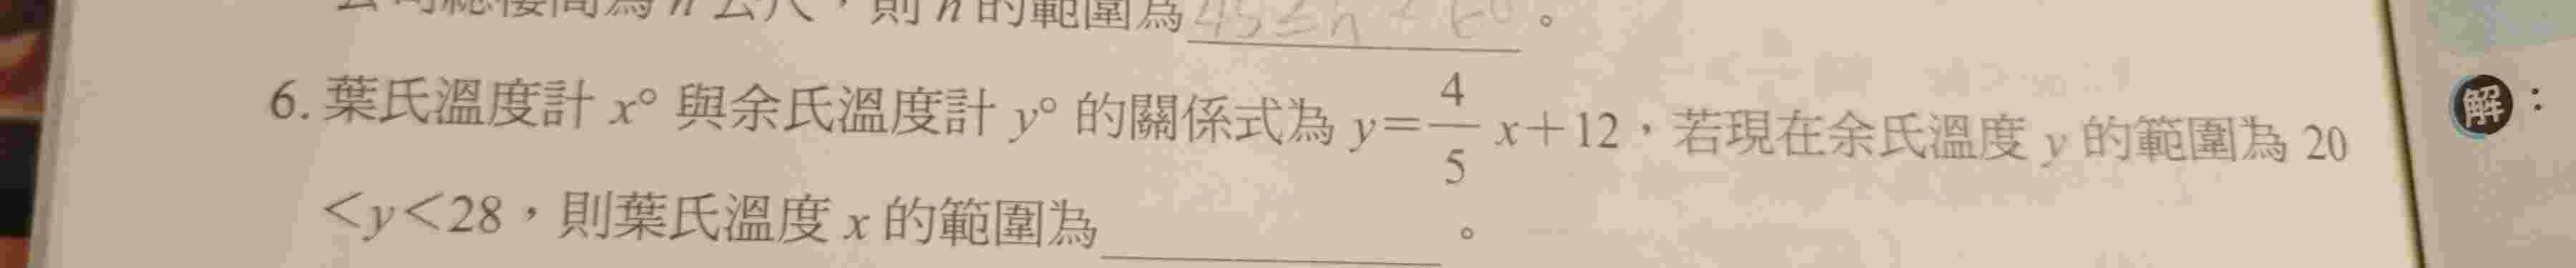 公司總樓高為 h 公尺,則 h 的範圍為 45≤h<60 。
6. 葉氏溫度計 x° 與余氏溫度計 y° 的關係式為 y=4/5 x+12,若現在余氏溫度 y 的範圍為 20
<y<28,則葉氏溫度 x 的範圍為 。
解: